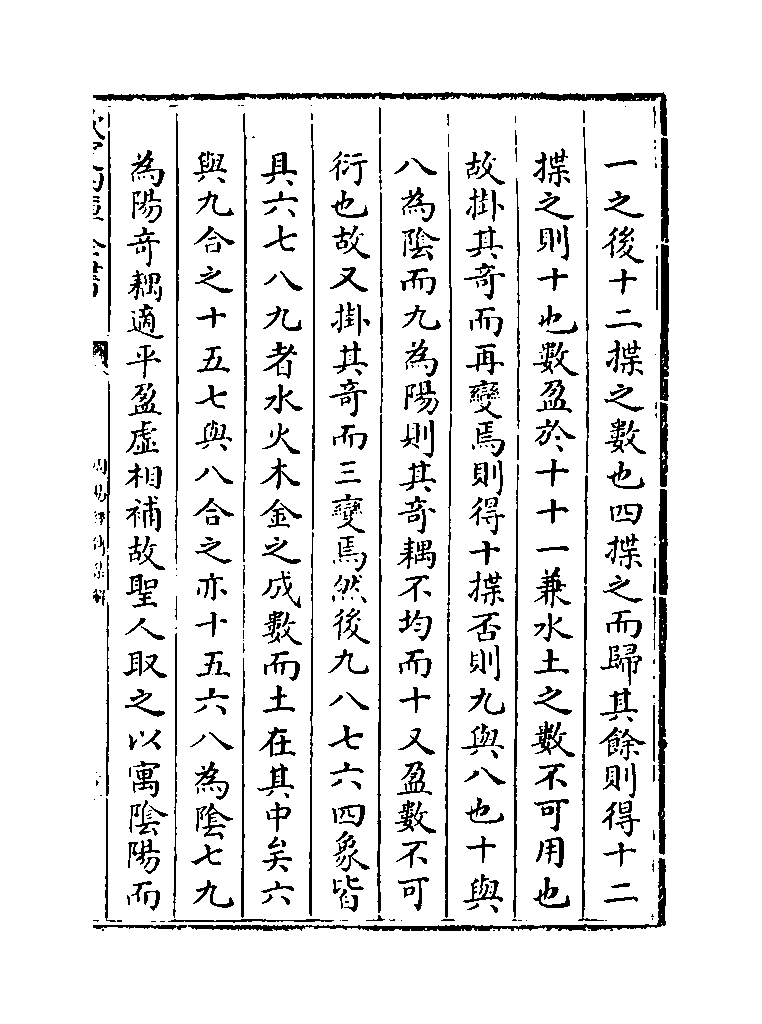 一之後十二揲之數也四揲之而歸其餘則得十二
揲之則十也數盈於十十一兼水土之數不可用也
故掛其奇而再變焉則得十揲否則九與八也十與
八為陰而九為陽則其奇耦不均而十又盈數不可
衍也故又掛其奇而三變焉然後九八七六四象皆
具六七八九者水火木金之成數而土在其中矣六
與九合之十五七與八合之亦十五六八為陰七九
為陽奇耦適平盈虛相補故聖人取之以寓陰陽而